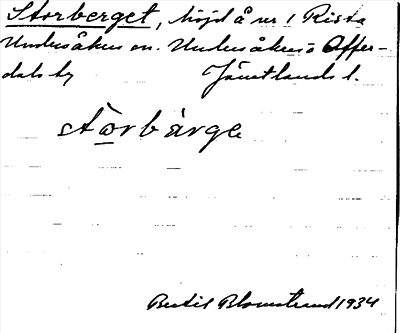 Storberget, höjd å nr 1 Rista
Undersåkers sn. Undersåkers o Offer-
dals tg Jämtlands l.
stòrbárge
Bertil Blomstrand 1934